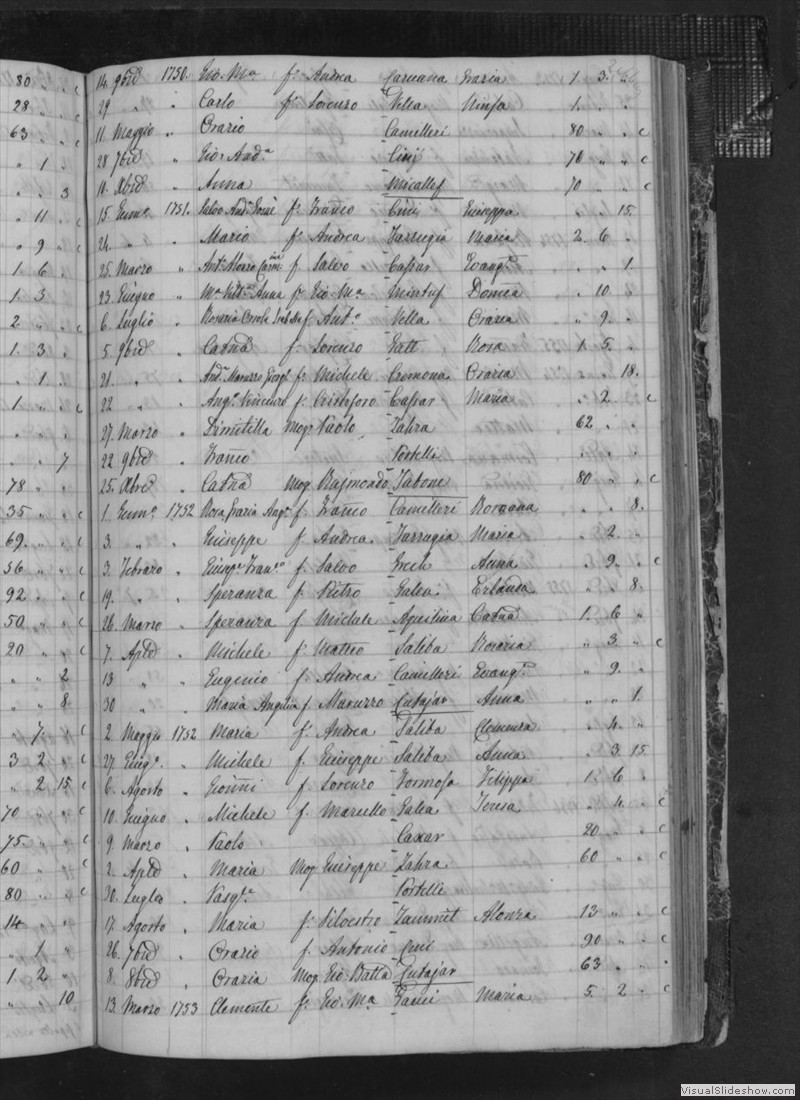 80 " " c
28 " " c
63 " " c
" 1 "
" " 3
" 11 " c
" 9 " c
1 6 "
1 3 "
2 " " c
1 3 "
" 1 "
1 " " c
" " "
" " 7
78 " "
35 " " c
69 " " c
56 " " c
92 " " c
50 " " c
20 " " c
" " 2
" " 8
" 7 " c
3 2 " c
" 2 15 c
70 " " c
75 " " c
60 " "
80 " " c
14 " "
" 1 "
1 2 "
" " 10
14 9bre 1750 Gio. Ma f. Andrea Caruana Grazia 1 3 "
29 " " Carlo f. Lorenzo Vella Ninfa 1 " "
11 Maggio " Orazio Camilleri 80 " " c
28 7bre " Gio. Anda Cini 70 " " c
14 Xbre " Anna Micallef 70 " " c
15 Genn. 1751 Salvo f. Franco Cini Giuseppa " " 15
24 " " Mario f. Andrea Farrugia Maria 2 6 "
25 Marzo " f. Salvo Caspar Evangta " " 1
23 Giugno " Anna f. Gio. Ma Mintuf " 10 "
6 Luglio " Rosaria f. Anto Vella Grazia " 9 "
5 9bre " Catna f. Lorenzo Gatt Rosa 1 5 "
21 " " f. Michele Cremona Grazia " " 18
22 " " Angо Vincenzo f. Cristoforo Caspar Maria " 2 " c
27 Marzo " Domitilla Mog. Paolo Zahra 62 " "
22 9bre " Franco Portelli
25 Xbre " Catna Mog. Rajmondo Tabone 80 " " c
1 Genn. 1752 Rosa Grazia f. Franco Camilleri " " 8
3 " " Giuseppe f. Andrea Farrugia Maria " 2 "
3 Febraro " f. Salvo Grech Anna " 9 " c
19 " " Speranza f. Pietro Galea Erlanda " " 8
26 Marzo " Speranza f. Michele Aquilina Catna 1 6 "
7 Aple " Michele f. Matteo Saliba Rosaria " 3 " c
13 " " Eugenio f. Andrea Camilleri Evangta " 9 "
30 " " Maria Angelica f. Maruzzo Cutajar Anna " " 1
2 Maggio 1752 Maria f. Andrea Saliba Clemenza " 4 "
27 Giug. " Michele f. Giuseppe Saliba Anna " 3 15
6 Agosto " Gionni f. Lorenzo Formosa Filippa 1 6 "
10 Giugno " Michele f. Marcello Galea Teresa " 4 " c
9 Marzo " Paolo Caxar 20 " " c
2 Aple " Maria Mog. Giuseppe Zahra 60 " " c
30 Luglio " Pasqle Portelli
17 Agosto " Maria f. Silvestro Zammit Alonza 13 " " c
26 7bre " Orazio f. Antonio 90 " " c
8 8bre " Grazia Mog. Gio. Batta Cutajar 63 " "
13 Marzo 1753 Clemente f. Gio. Ma Maria 5 2 " c
VisualSlideshow.com